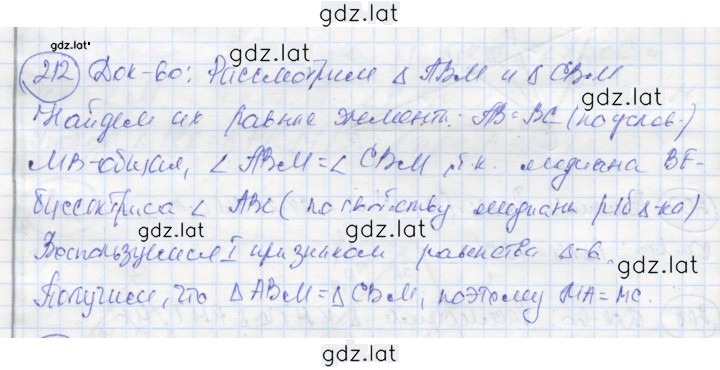 gdz.lat
gdz.lat
212 Док-во: Рассмотрим Δ ABM и Δ CBM
gdz.lat
Найдем их равные элементы: AB=BC (по услов.)
MB-общая, ∠ ABM=∠ CBM, т.к. медиана BF-
gdz.lat
биссектриса ∠ ABC (по свойству медианы р/б Δ-ка)
gdz.lat
Воспользуемся I признаком равенства Δ-в.
gdz.lat
Получим, что Δ ABM=Δ CBM, поэтому MA=MC.
gdz.lat